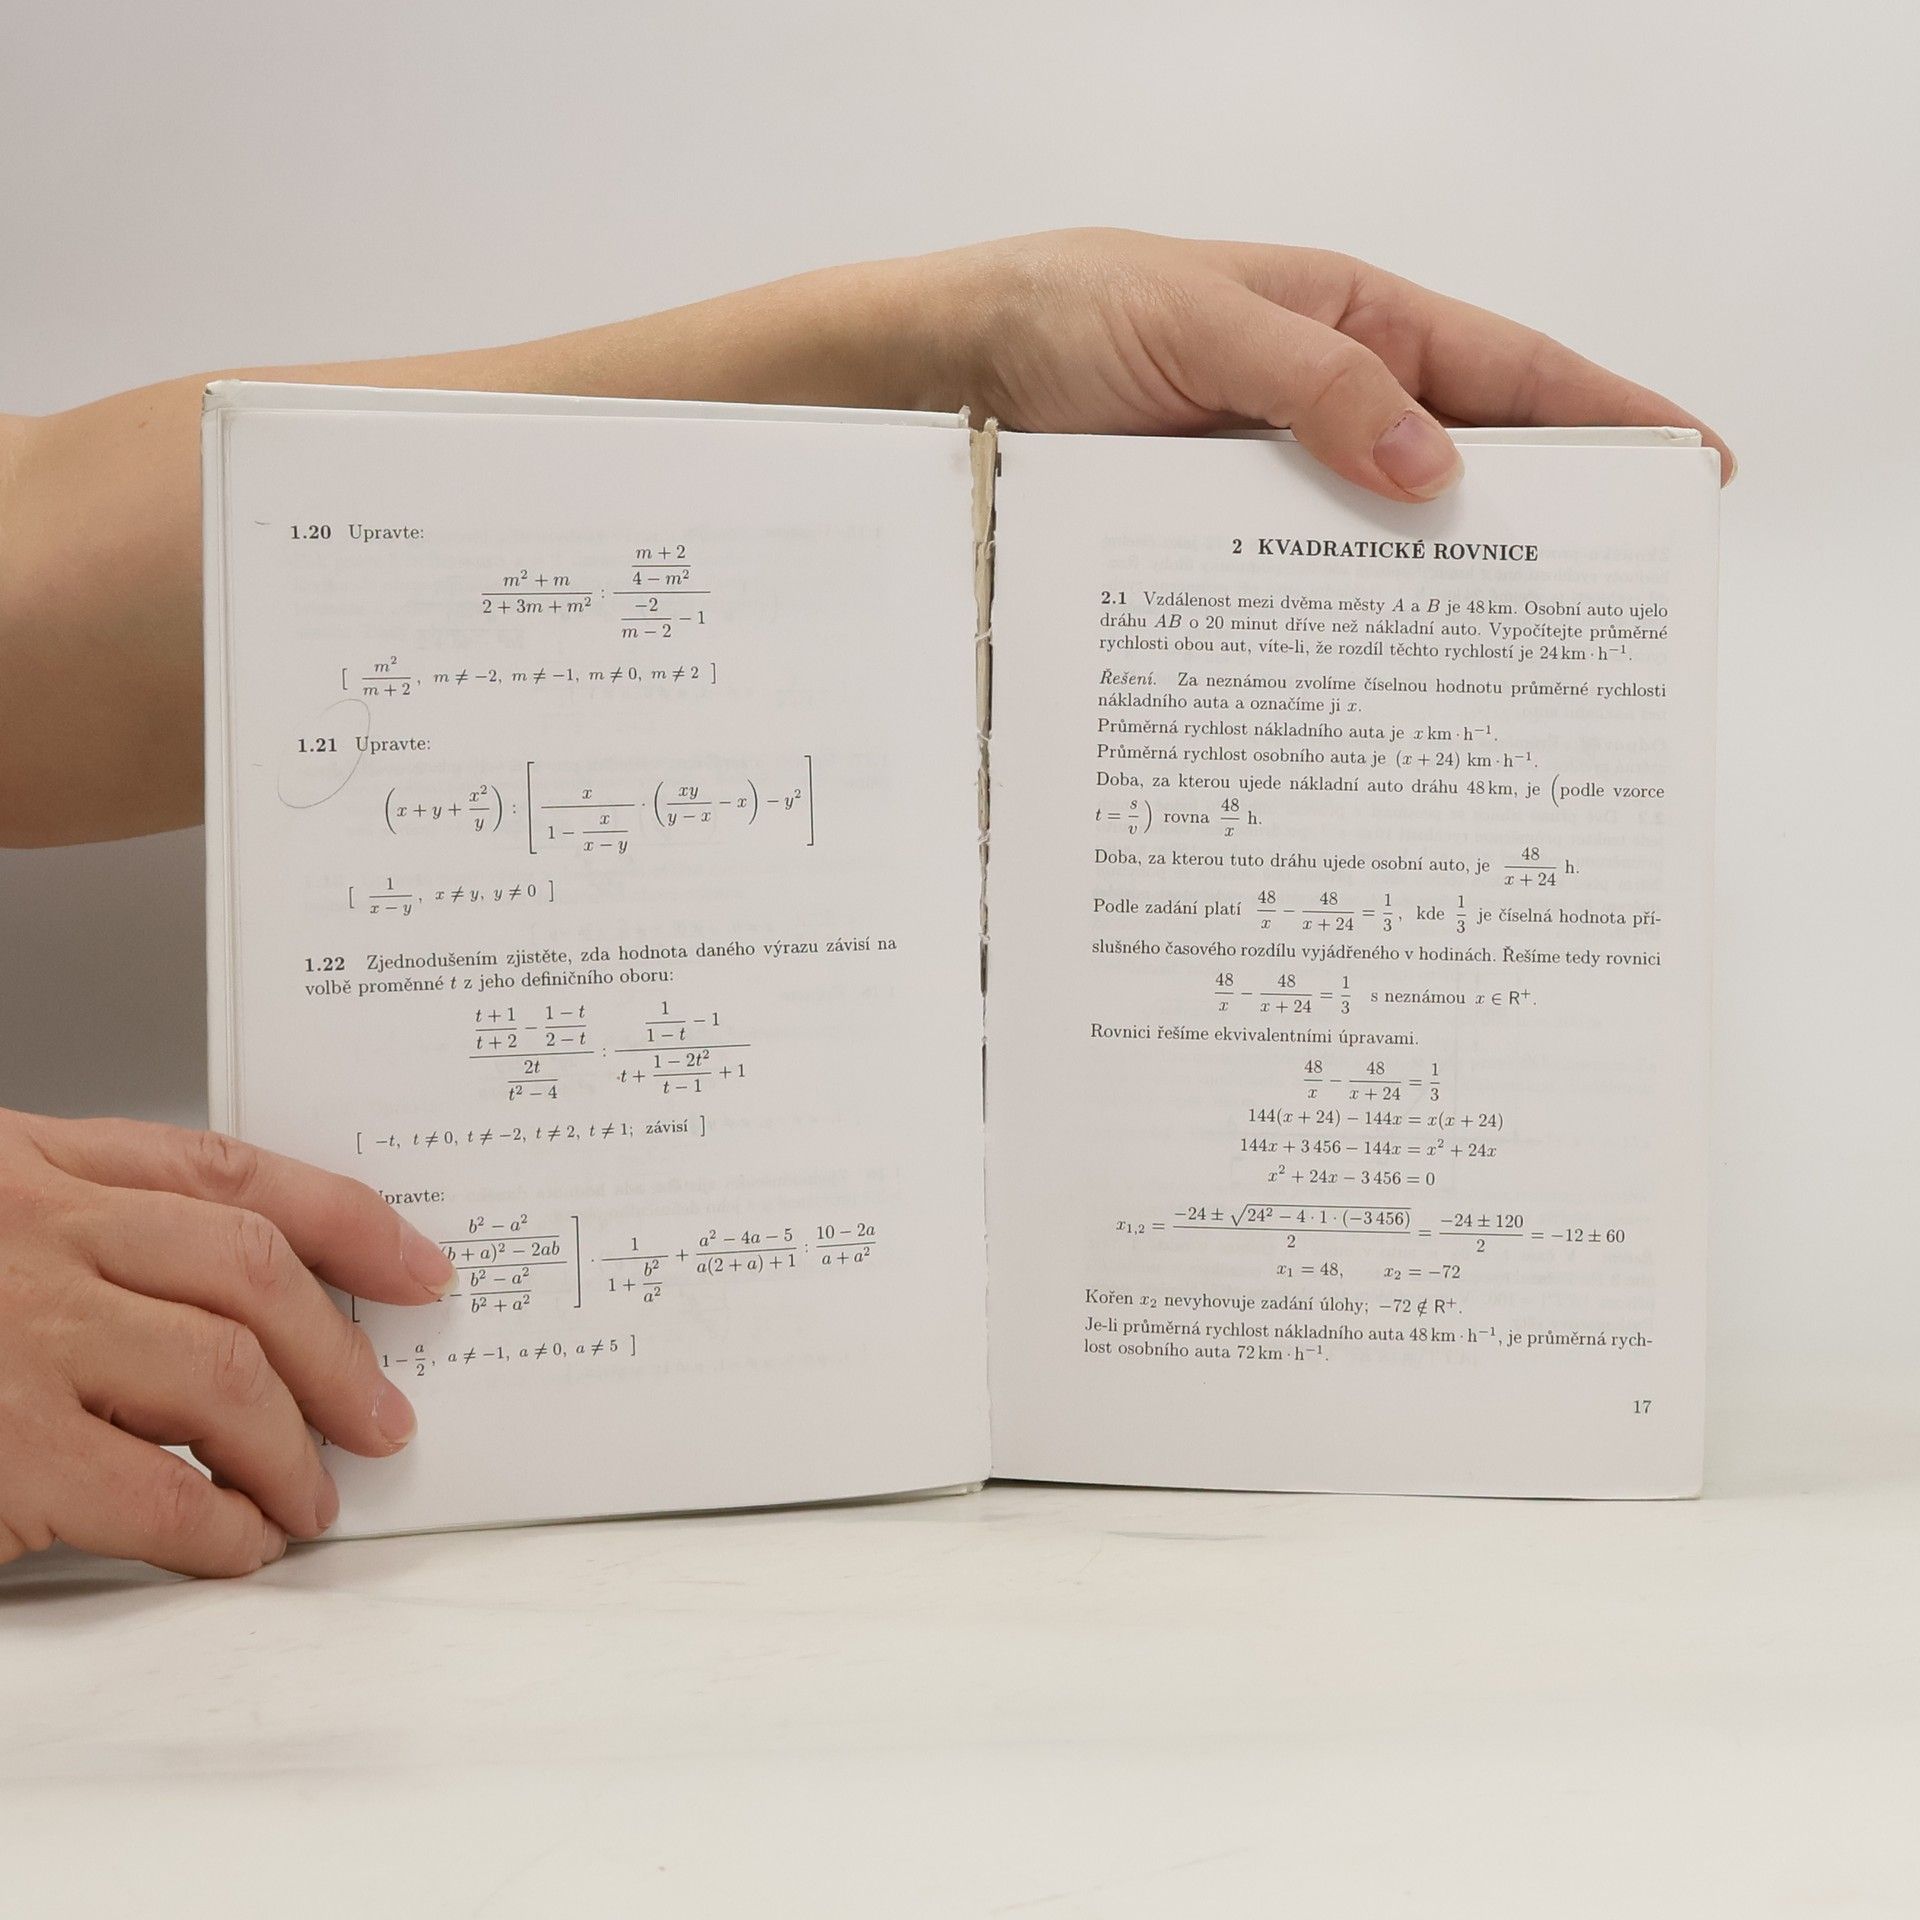 1.20 Upravte:
\frac{m^2 + m}{2 + 3m + m^2} : \frac{\frac{m + 2}{4 - m^2}}{\frac{-2}{m - 2} - 1}
[ \frac{m^2}{m + 2}, m ≠ −2, m ≠ −1, m ≠ 0, m ≠ 2 ]
1.21 Upravte:
\left( x + y + \frac{x^2}{y} \right) : \left[ \frac{x}{1 - \frac{x}{x - y}} \cdot \left( \frac{xy}{y - x} - x \right) - y^2 \right]
[ \frac{1}{x - y}, x ≠ y, y ≠ 0 ]
1.22 Zjednodušením zjistěte, zda hodnota daného výrazu závisí na
volbě proměnné t z jeho definičního oboru:
\frac{\frac{t + 1}{t + 2} - \frac{1 - t}{2 - t}}{\frac{2t}{t^2 - 4}} : \frac{\frac{1}{1 - t} - 1}{t + \frac{1 - 2t^2}{t - 1} + 1}
[ −t, t ≠ 0, t ≠ −2, t ≠ 2, t ≠ 1; závisí ]
pravte:
\frac{\frac{b^2 - a^2}{(b + a)^2 - 2ab}}{- \frac{b^2 - a^2}{b^2 + a^2}} ] \cdot \frac{1}{1 + \frac{b^2}{a^2}} + \frac{a^2 - 4a - 5}{a(2 + a) + 1} : \frac{10 - 2a}{a + a^2}
1 − \frac{a}{2}, a ≠ −1, a ≠ 0, a ≠ 5 ]
2 KVADRATICKÉ ROVNICE
2.1 Vzdálenost mezi dvěma městy A a B je 48 km. Osobní auto ujelo
dráhu AB o 20 minut dříve než nákladní auto. Vypočítejte průměrné
rychlosti obou aut, víte-li, že rozdíl těchto rychlostí je 24 km · h⁻¹.
Řešení. Za neznámou zvolíme číselnou hodnotu průměrné rychlosti
nákladního auta a označíme ji x.
Průměrná rychlost nákladního auta je x km · h⁻¹.
Průměrná rychlost osobního auta je (x + 24) km · h⁻¹.
Doba, za kterou ujede nákladní auto dráhu 48 km, je (podle vzorce
t = \frac{s}{v}) rovna \frac{48}{x} h.
Doba, za kterou tuto dráhu ujede osobní auto, je \frac{48}{x + 24} h.
Podle zadání platí \frac{48}{x} - \frac{48}{x + 24} = \frac{1}{3}, kde \frac{1}{3} je číselná hodnota pří-
slušného časového rozdílu vyjádřeného v hodinách. Řešíme tedy rovnici
\frac{48}{x} - \frac{48}{x + 24} = \frac{1}{3} s neznámou x ∈ R⁺.
Rovnici řešíme ekvivalentními úpravami.
\frac{48}{x} - \frac{48}{x + 24} = \frac{1}{3}
144(x + 24) − 144x = x(x + 24)
144x + 3 456 − 144x = x² + 24x
x² + 24x − 3 456 = 0
x_{1,2} = \frac{-24 ± \sqrt{24^2 - 4 · 1 · (-3 456)}}{2} = \frac{-24 ± 120}{2} = −12 ± 60
x₁ = 48, x₂ = −72
Kořen x₂ nevyhovuje zadání úlohy; −72 ∉ R⁺.
Je-li průměrná rychlost nákladního auta 48 km · h⁻¹, je průměrná rych-
lost osobního auta 72 km · h⁻¹.
17